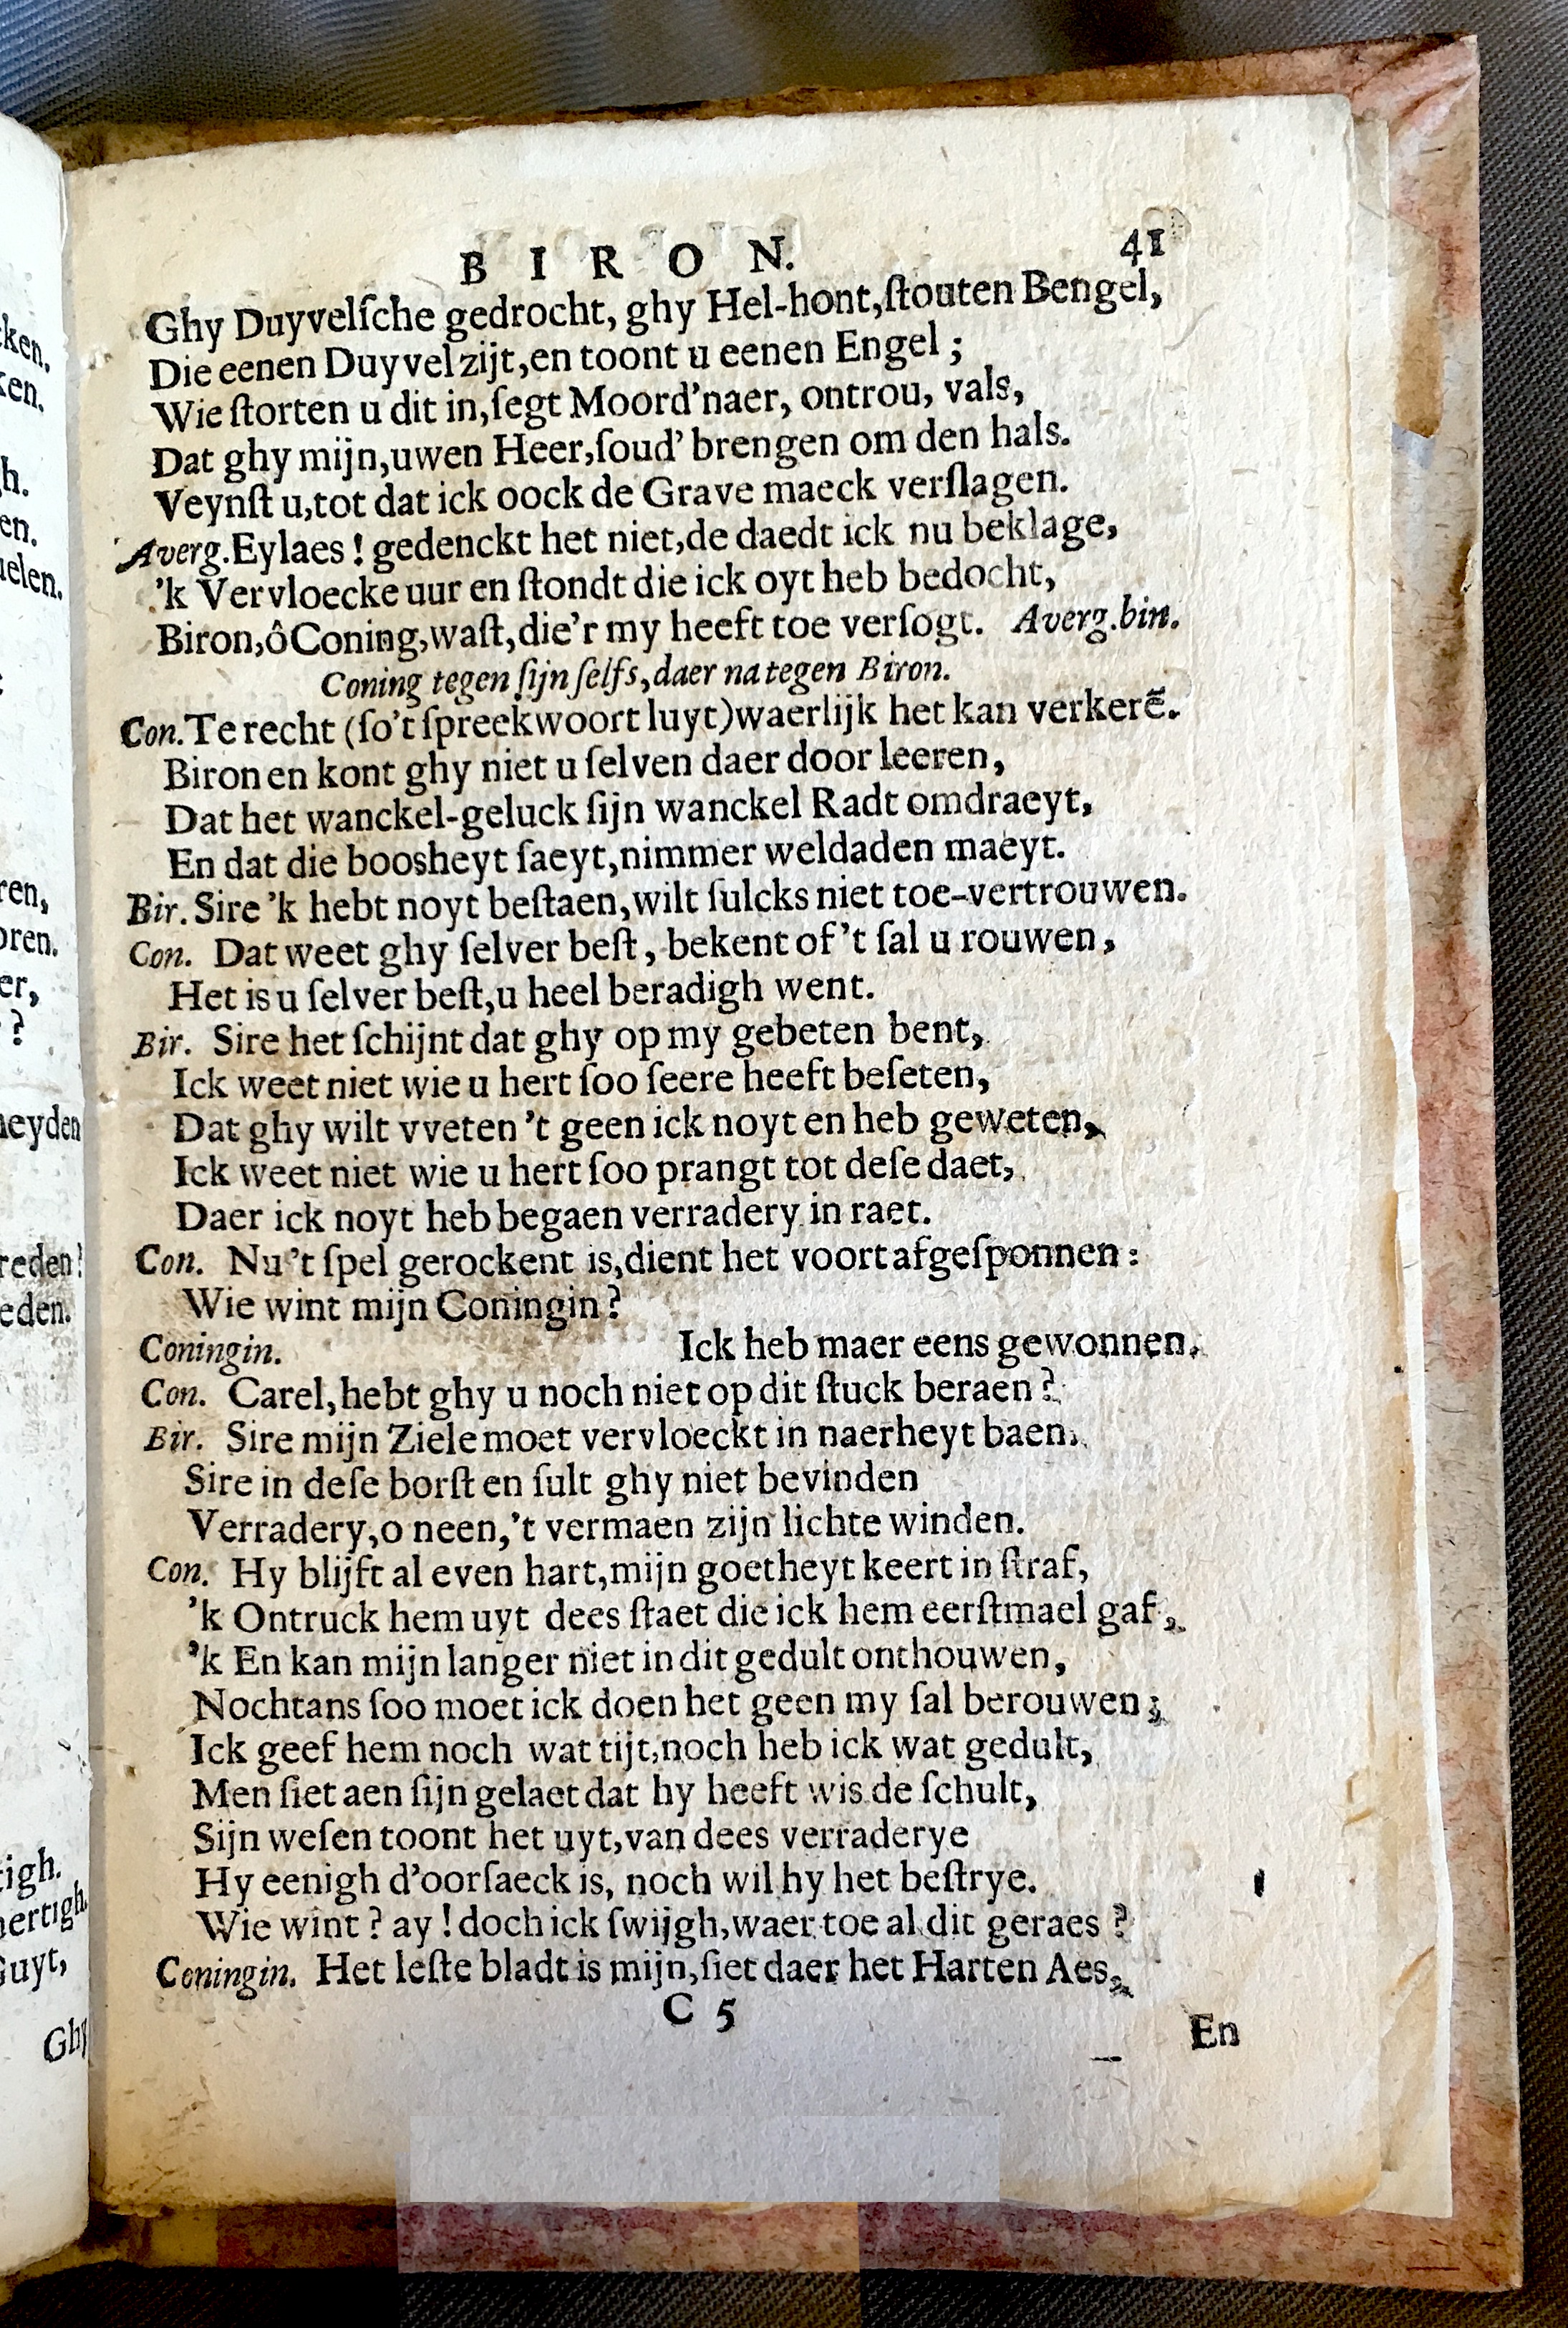 ken.
ken.
h.
en.
uelen.
ren,
oren.
er,
?
heyden
reden!
eden.
tigh.
hertigh.
Guyt,
Ghy
B I R O N. 41
Ghy Duyvelſche gedrocht, ghy Hel-hont,ſtouten Bengel,
Die eenen Duyvel zijt,en toont u eenen Engel ;
Wie ſtorten u dit in,ſegt Moord'naer, ontrou, vals,
Dat ghy mijn,uwen Heer,ſoud' brengen om den hals.
Veynſt u,tot dat ick oock de Grave maeck verſlagen.
Averg.Eylaes ! gedenckt het niet,de daedt ick nu beklage,
'k Vervloecke uur en ſtondt die ick oyt heb bedocht,
Biron,ôConing,waſt,die'r my heeft toe verſogt. Averg.bin.
Coning tegen ſijn ſelfs,daer na tegen Biron.
Con.Te recht (ſo't ſpreekwoort luyt)waerlijk het kan verkerẽ.
Biron en kont ghy niet u ſelven daer door leeren,
Dat het wanckel-geluck ſijn wanckel Radt omdraeyt,
En dat die boosheyt ſaeyt,nimmer weldaden maeyt.
Bir. Sire 'k hebt noyt beſtaen,wilt ſulcks niet toe-vertrouwen.
Con. Dat weet ghy ſelver beſt, bekent of't ſal u rouwen,
Het is u ſelver beſt,u heel beradigh went.
Bir. Sire het ſchijnt dat ghy op my gebeten bent,
Ick weet niet wie u hert ſoo ſeere heeft beſeten,
Dat ghy wilt vveten 't geen ick noyt en heb geweten,
Ick weet niet wie u hert ſoo prangt tot deſe daet,
Daer ick noyt heb begaen verradery in raet.
Con. Nu't ſpel gerockent is,dient het voort afgeſponnen :
Wie wint mijn Coningin ?
Coningin. Ick heb maer eens gewonnen.
Con. Carel,hebt ghy u noch niet op dit ſtuck beraen ?
Bir. Sire mijn Ziele moet vervloeckt in naerheyt baen,
Sire in deſe borſt en ſult ghy niet bevinden
Verradery,o neen,'t vermaen zijn lichte winden.
Con. Hy blijft al even hart,mijn goetheyt keert in ſtraf,
'k Ontruck hem uyt dees ſtaet die ick hem eerſtmael gaf,
'k En kan mijn langer niet in dit gedult onthouwen,
Nochtans ſoo moet ick doen het geen my ſal berouwen;
Ick geef hem noch wat tijt,noch heb ick wat gedult,
Men ſiet aen ſijn gelaet dat hy heeft wis de ſchult,
Sijn weſen toont het uyt,van dees verraderye
Hy eenigh d'oorſaeck is, noch wil hy het beſtrye.
Wie wint ? ay ! doch ick ſwijgh,waer toe al dit geraes ?
Coningin. Het leſte bladt is mijn,ſiet daer het Harten Aes,
C 5 En